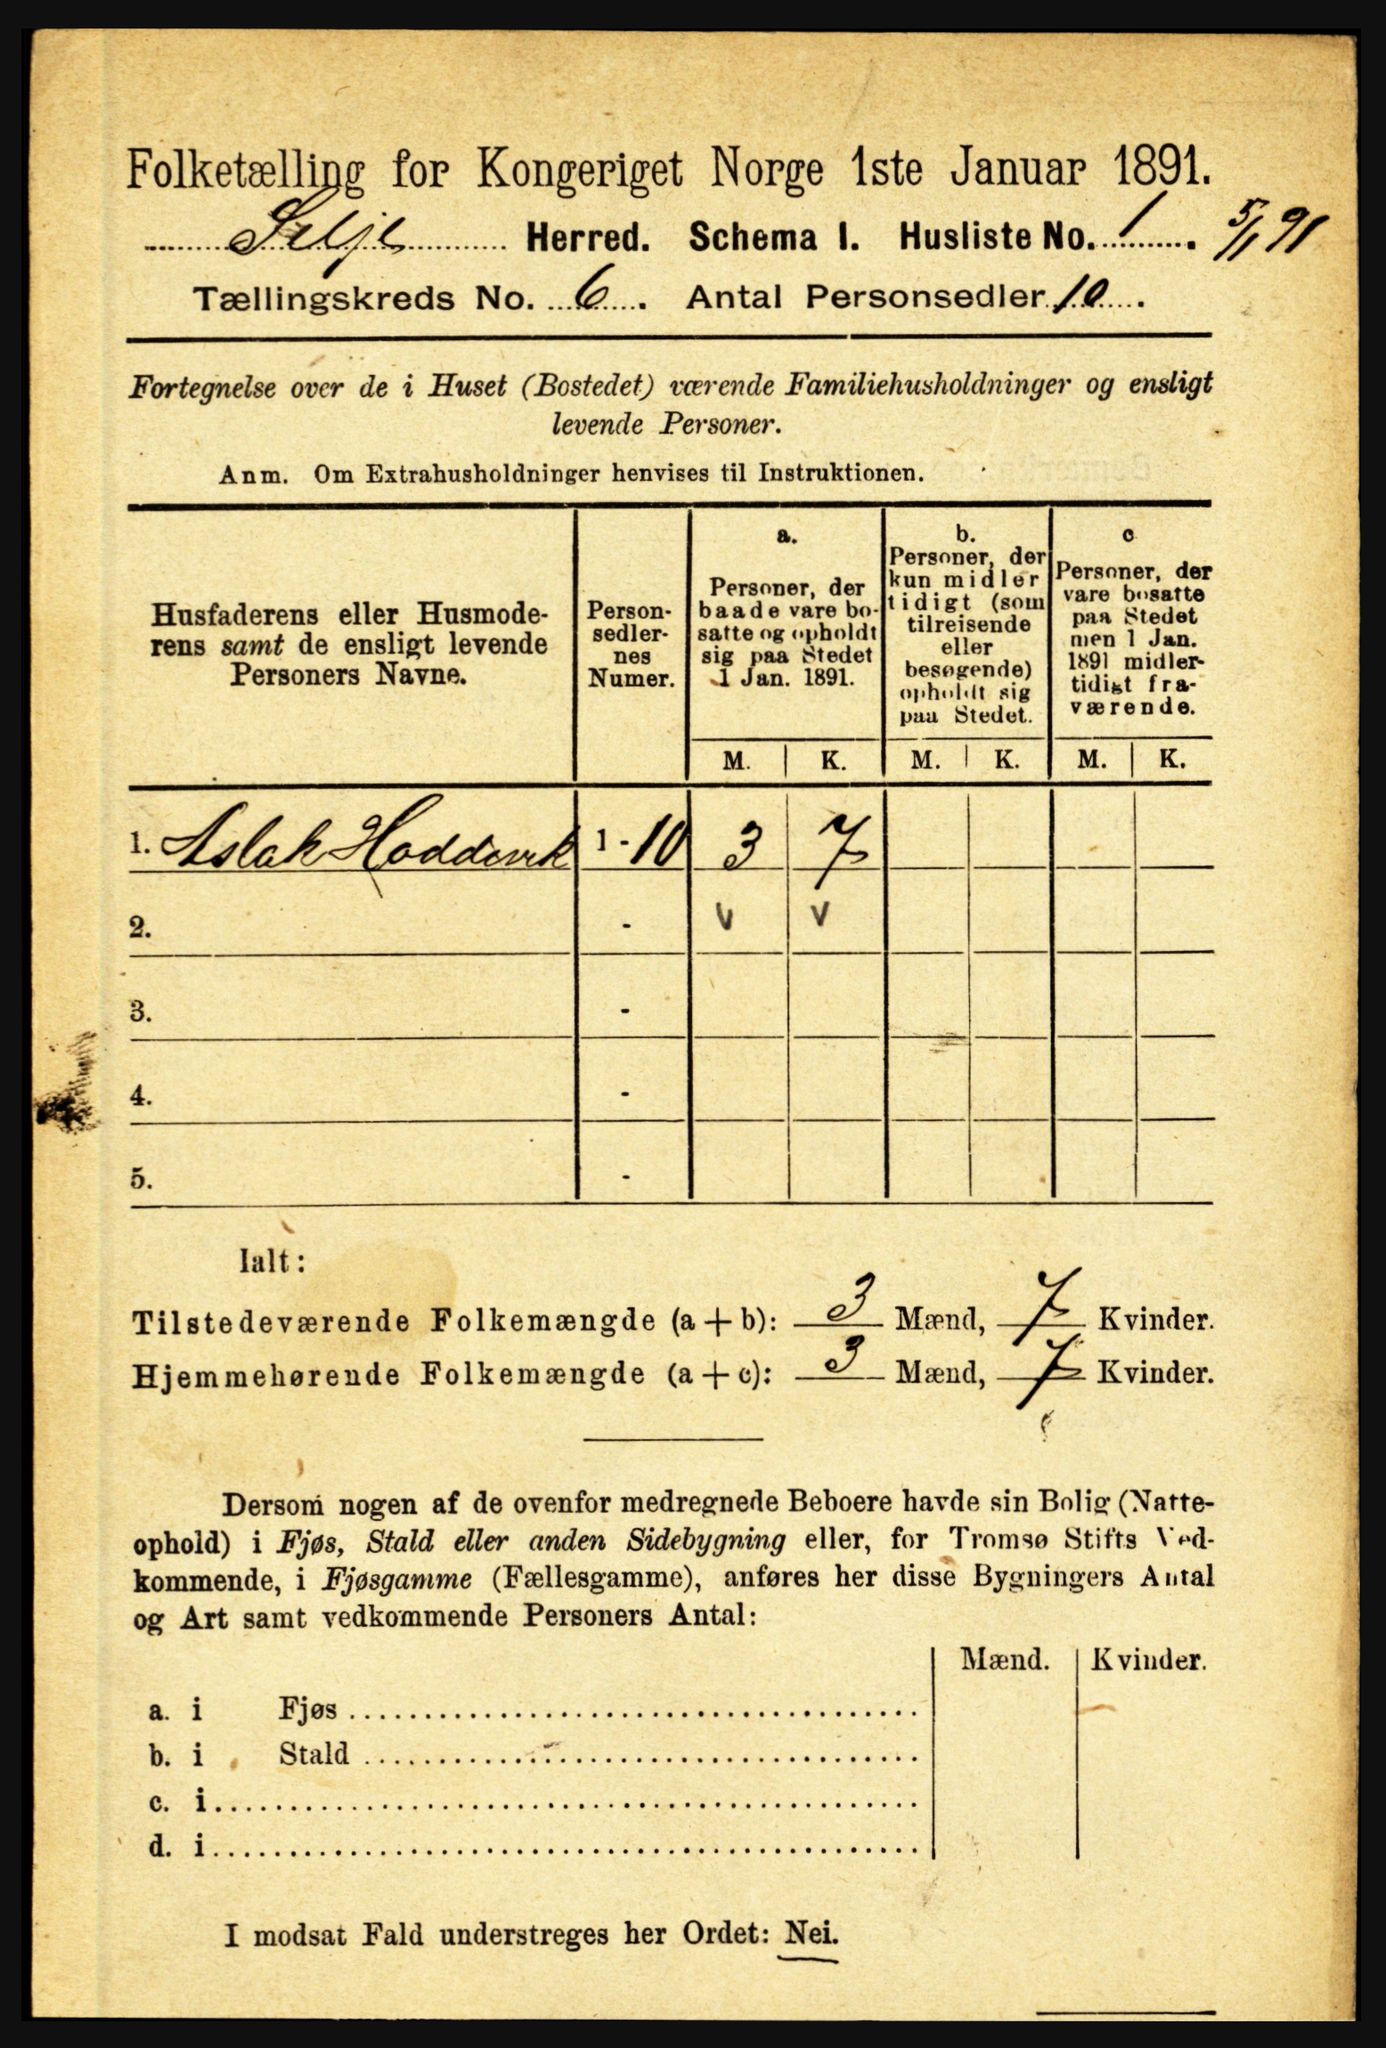 Folketælling for Kongeriget Norge 1ste Januar 1891.
Selje Herred. Schema I. Husliste No. 1. 5/1 91
Tællingskreds No. 6. Antal Personsedler 10.
Fortegnelse over de i Huset (Bostedet) værende Familiehusholdninger og ensligt
levende Personer.
Anm. Om Extrahusholdninger henvises til Instruktionen.
Husfaderens eller Husmode-
rens samt de ensligt levende
Personers Navne.
Person-
sedler-
nes
Numer.
a.
Personer, der
baade vare bo-
satte og opholdt
sig paa Stedet
1 Jan. 1891.
b.
Personer, der
kun midler
tidigt (som
tilreisende
eller
besøgende)
opholdt sig
paa Stedet.
c
Personer, der
vare bosatte
paa Stedet
men 1 Jan.
1891 midler-
tidigt fra-
værende.
M. K. M. K. M. K.
1. Aslak Hoddevik 1 - 10 3 7
2. - v v
3. -
4. -
5. -
Ialt:
Tilstedeværende Folkemængde (a + b): 3 Mænd, 7 Kvinder.
Hjemmehørende Folkemængde (a + c): 3 Mænd, 7 Kvinder.
Dersom nogen af de ovenfor medregnede Beboere havde sin Bolig (Natte-
ophold) i Fjøs, Stald eller anden Sidebygning eller, for Tromsø Stifts Ved-
kommende, i Fjøsgamme (Fællesgamme), anføres her disse Bygningers Antal
og Art samt vedkommende Personers Antal:
Mænd. Kvinder.
a. i Fjøs
b. i Stald
c. i
d. i
I modsat Fald understreges her Ordet: Nei.